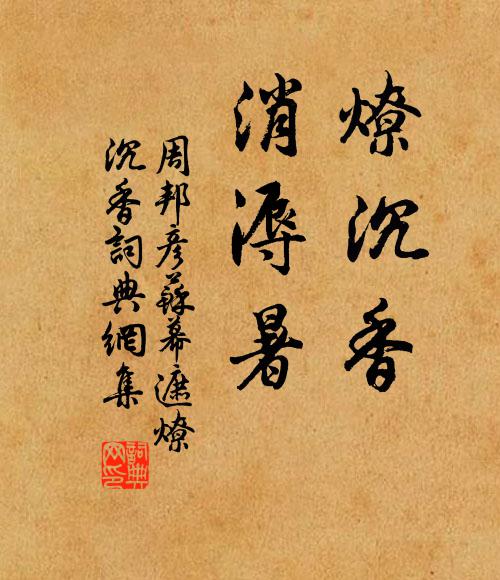 燎沉香
消溽暑
周邦彦蘇幕遮燎
沉香詞典網集
詞典
网印